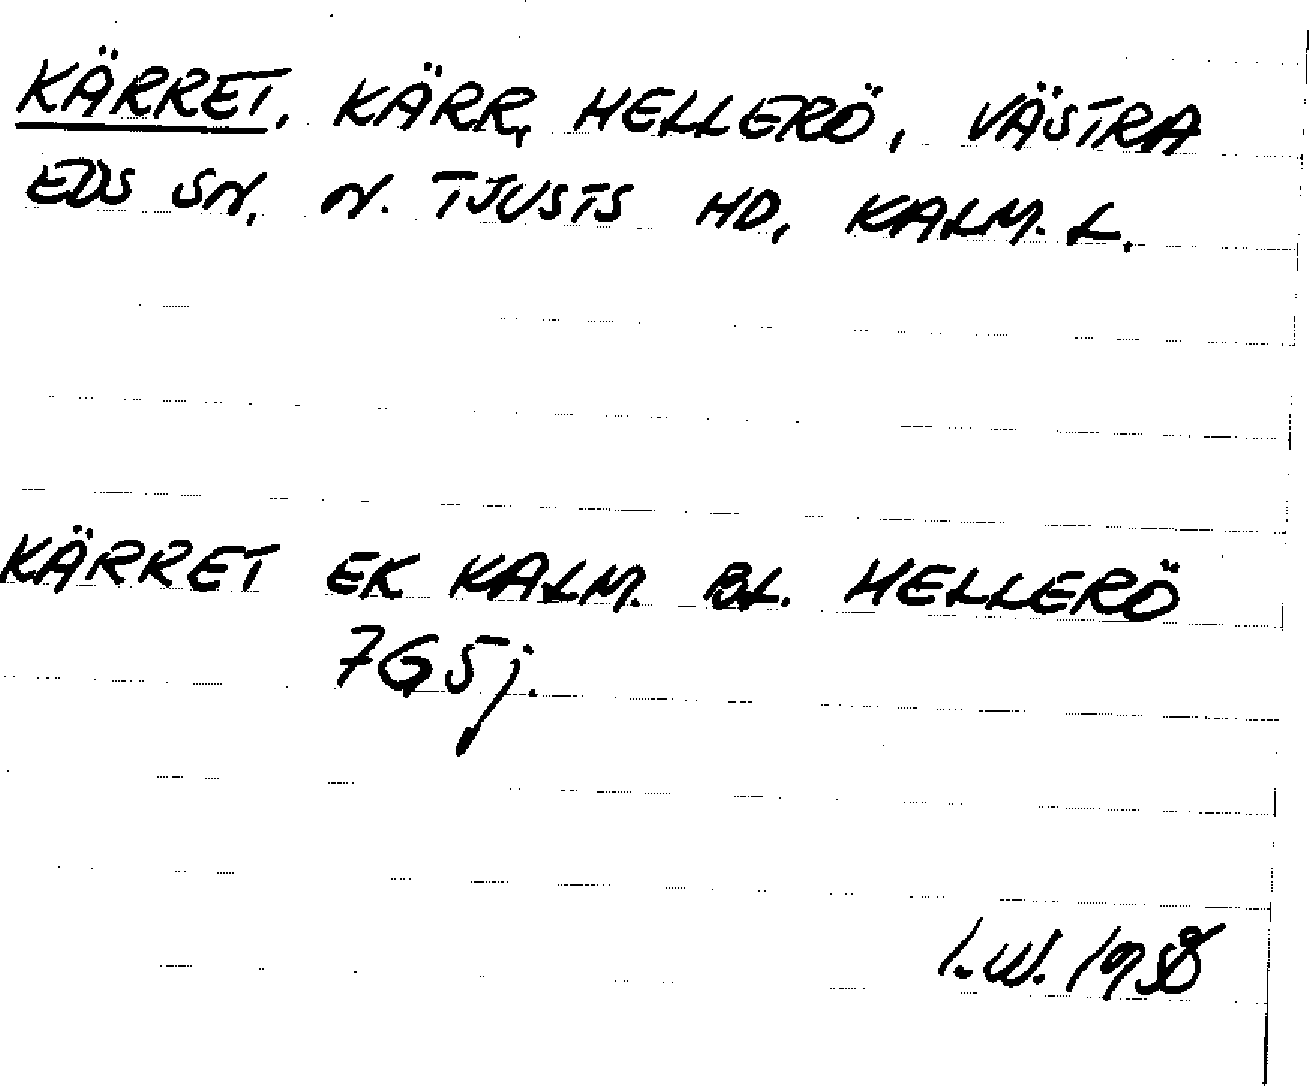 KÄRRET, KÄRR, HELLERÖ, VÄSTRA
EDS SN, N. TJUSTS HD, KALM. L.
KÄRRET EK KALM. BL. HELLERÖ
7G5j.
I.W. 1958